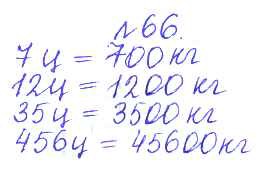 №66.
7ц = 700кг
12ц = 1200 кг
35ц = 3500 кг
456ц = 45600кг